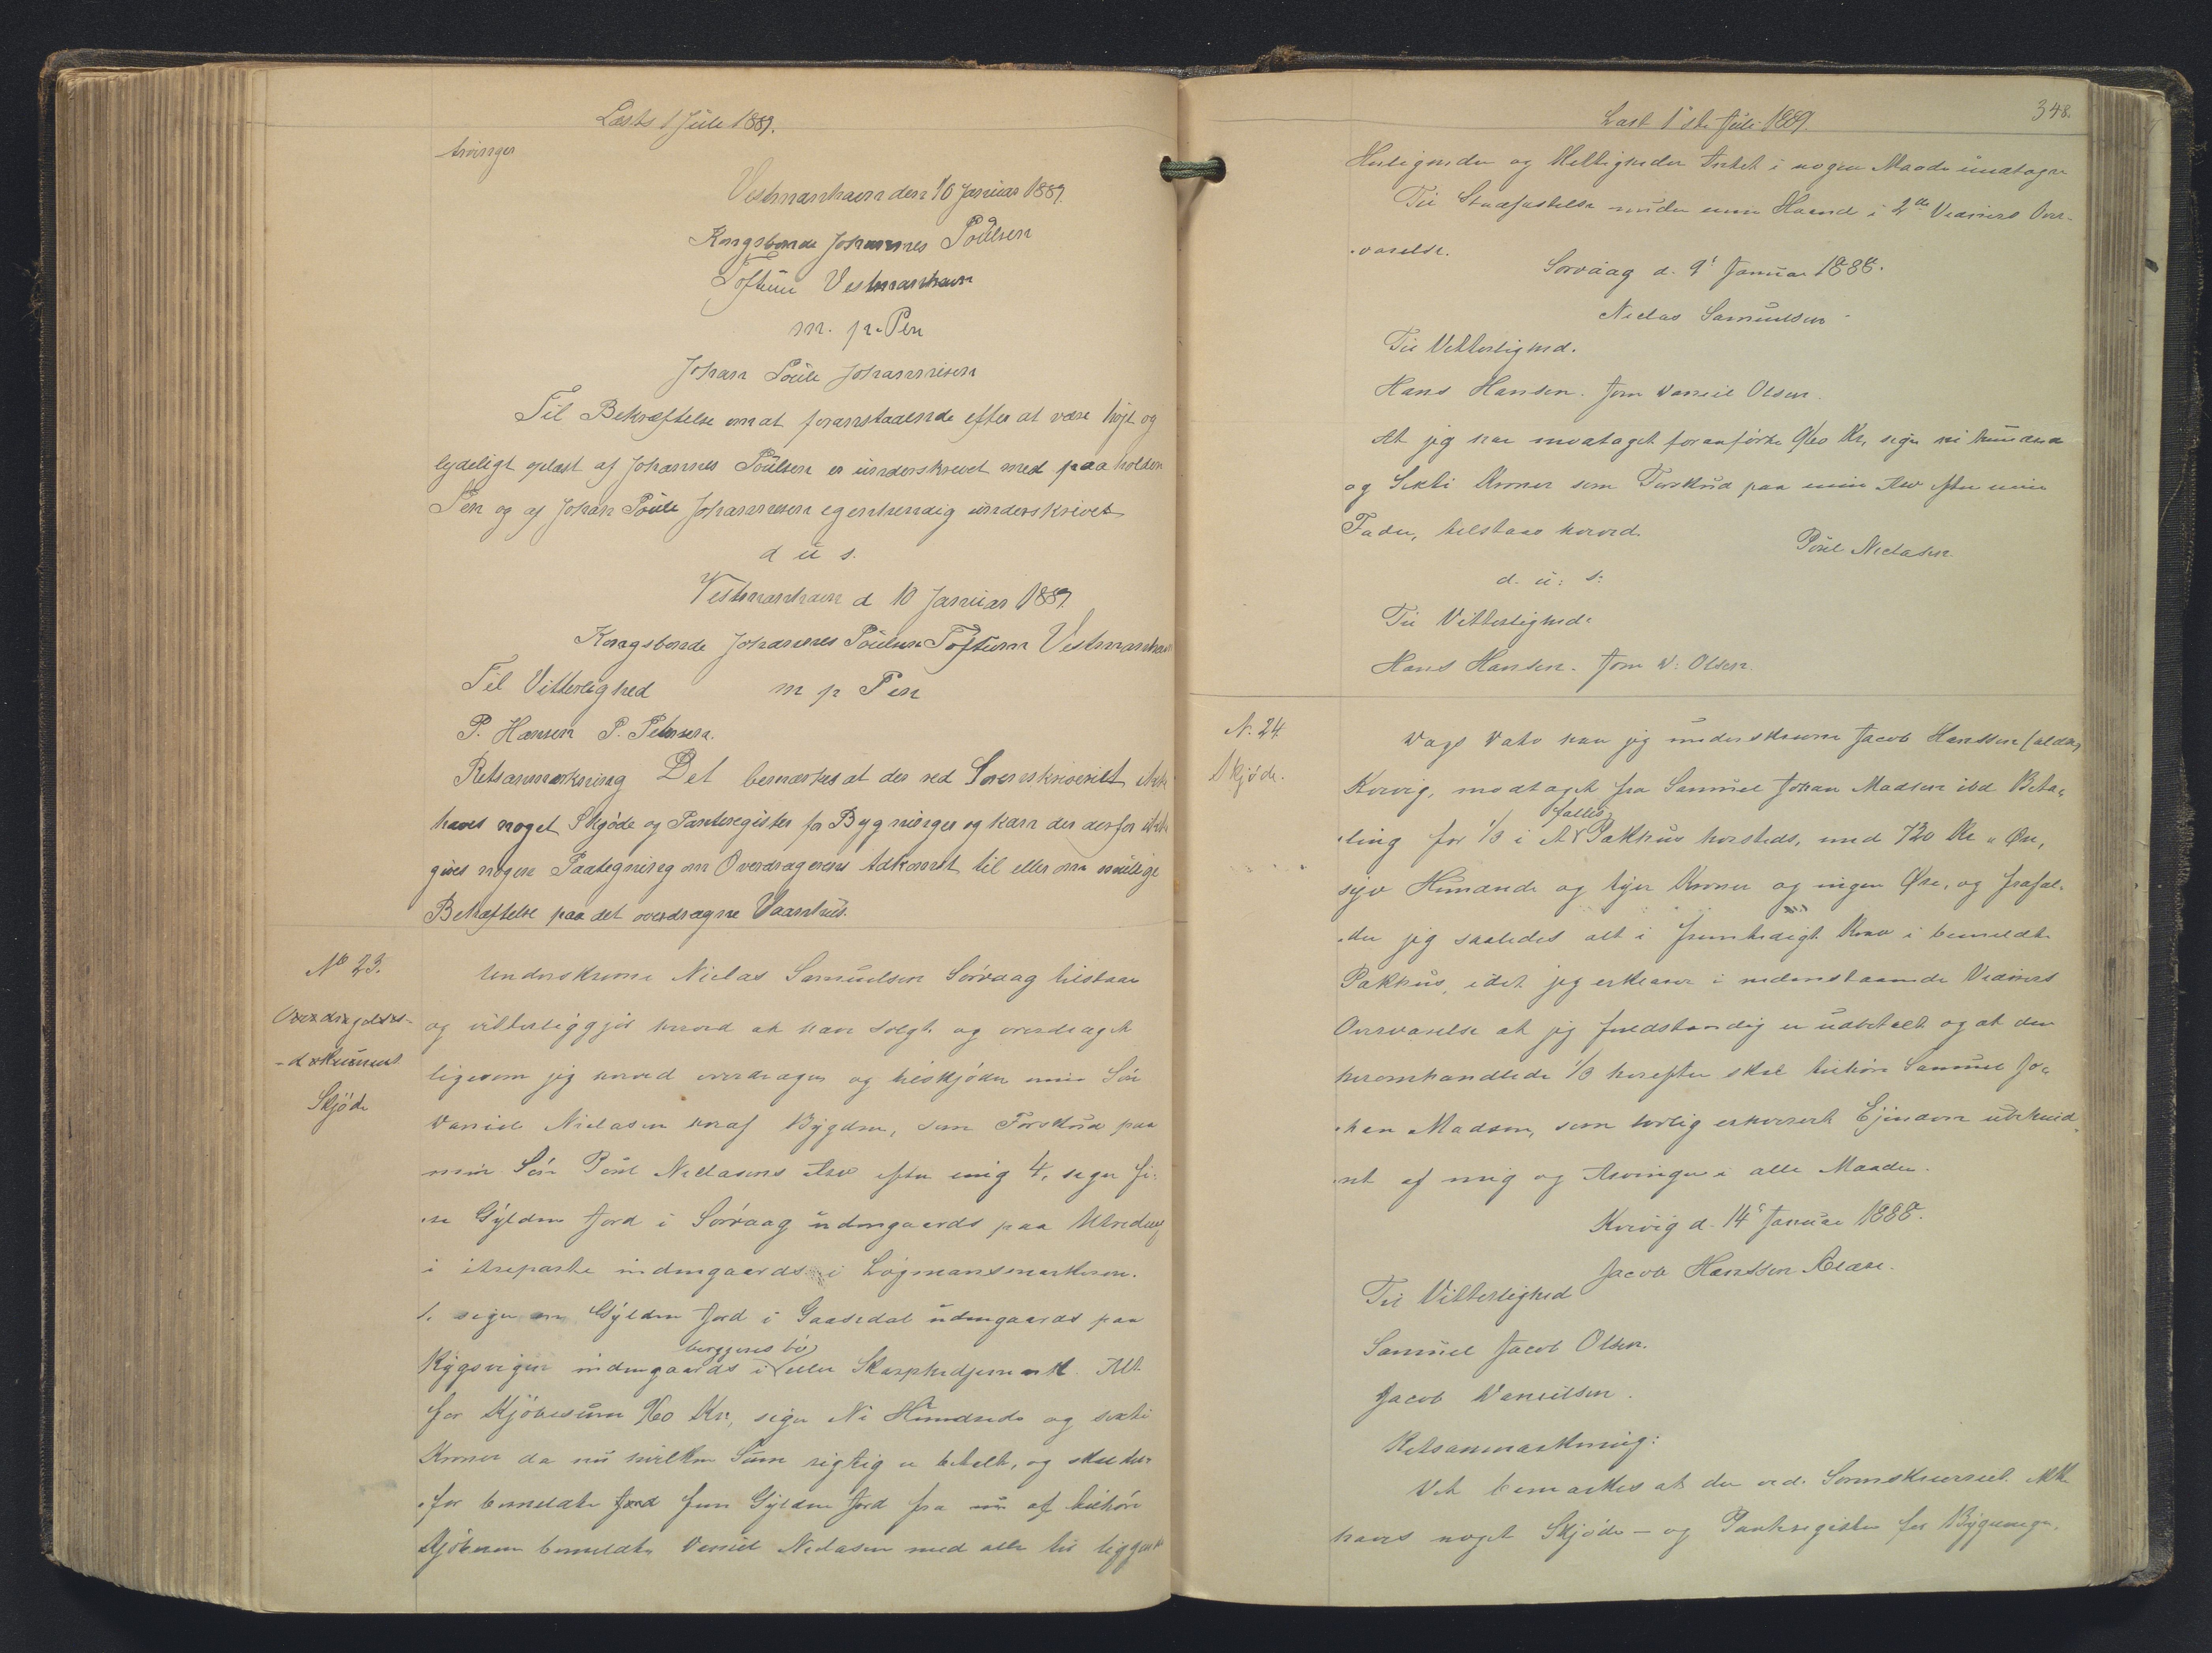 Læst 1 Juli 1889.
tvinger
Vestmanhavn den 10 Januar 1889.
Kongsbonde Johannes Poulsen
Toftum Vestmanhavn
m. p. Pen
Johan Poule Johannesen
Til Bekræftelse om at foranstaaende efter at være højt og
lydeligt oplæst af Johannes Poulsen er underskrevet med paaholden
Pen og af Johan Poule Johannesen egenhendig underskrivet
d u s.
Vestmanhavn d 10 Januar 1889
Kongsbonde Johannes Poulsen Toftum Vestmanhavn
Til Vitterlighed m p Pen
P. Hansen P. Petersen.
Retsanmærkning Det bemærkes at der ved Sorenskriveriet ikke
haves noget Skjøde og Panteregister for Bygninger og kan der derfor ikke
gives nogen Paategning om Overdragerens Adkomst til eller om mulige
Behæftelse paa det overdragne Vaanhus.
No 23.
Overdragelses-
-dokument
Skjöde
Underskrevne Niclas Samuelsen Sörvaag tilstaar
og vitterliggjör herved at have solgt og overdraget
ligesom jeg herved overdrager og tilskjöder min Sön
Daniel Niclasen heraf Bygden, som Forskud paa
min Sön Poul Niclasens Arv efter mig 4, siger fi-
-re Gylden Jord i Sörvaag udengaards paa
i indengaards i Lögmansmarken.
1. siger en Gylden Jord i Gaasedal udengaards paa
Rygsvigen indengaards i berggens bö eller Alt
for Kjöbesum 960 Kr, siger Ni Hundrede og sexti
Kroner da nu hvilken Sum rigtig er betalt, og skal der-
-for bemeldte Jord fem Gylden Jord fra nu af tilhöre
Kjöberen bemeldte Daniel Niclasen med alle til liggende
348.
Læst 1ste Juli 1889.
Herligheder og Rettigheder Intet i nogen Maade undtagen
Til Stadfæstelse under min Haand i 2de Vidners Over-
-værelse.
Sorvaag d. 9' Januar 1888.
Niclas Samuelsen
Til Vitterlighed.
Hans Hansen. Joen Daniel Olsen.
At jeg har modtaget foranförte 960 Kr, siger ni hundrede
og Sexti Kroner som Forskud paa min Arv efter min
Fader, tilstaar herved.
Poul Niclasen
d. u: s:
Til Vitterlighed:
Hans Hansen. Joen D: Olsen.
N. 24
Skjöde.
Dags Dato har jeg underskrevne Jacob Hanssen (ældre)
Kvivig, modtaget fra Samuel Johan Madsen ibd Beta-
-ling for 1/3 i et fælles Pakhus hersteds, med 720 Kr " Öre,
syv Hundrede og tyve Kroner og ingen Öre, og frafal-
-der jeg saaledes alt i fremtidigt Krav i bemeldte
Pakhus, idet jeg erklærer i nedenstaaende Vidners
Overværelse at jeg fuldstændig er udbetalt og at den
heromhandlede 1/3 herefter skal tilhöre Samuel Jo-
-han Madsen, som lovlig erhvervet Ejendom
af mig og Arvinger i alle Maader.
Kvivig d. 14' Januar 1888.
Jacob Hanssen Ældre.
Til Vitterlighed
Samuel Jacob Olsen.
Jacob Danielsen.
Retsanmærkning:
Det bemærkes at der ved Sorenskriveriet ikke
haves noget Skjöde- og Panteregister for Bygninger,